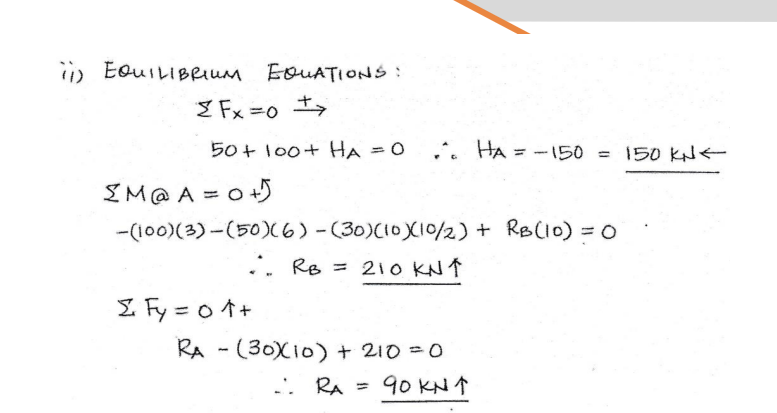 ii) EQUILIBRIUM EQUATIONS :
Σ Fx = 0 +→
50 + 100 + HA = 0 ∴ HA = -150 = 150 kN ←
Σ M @ A = 0 +↺
-(100)(3) - (50)(6) - (30)(10)(10/2) + RB(10) = 0
∴ RB = 210 KN ↑
Σ Fy = 0 ↑+
RA - (30)(10) + 210 = 0
∴ RA = 90 KN ↑